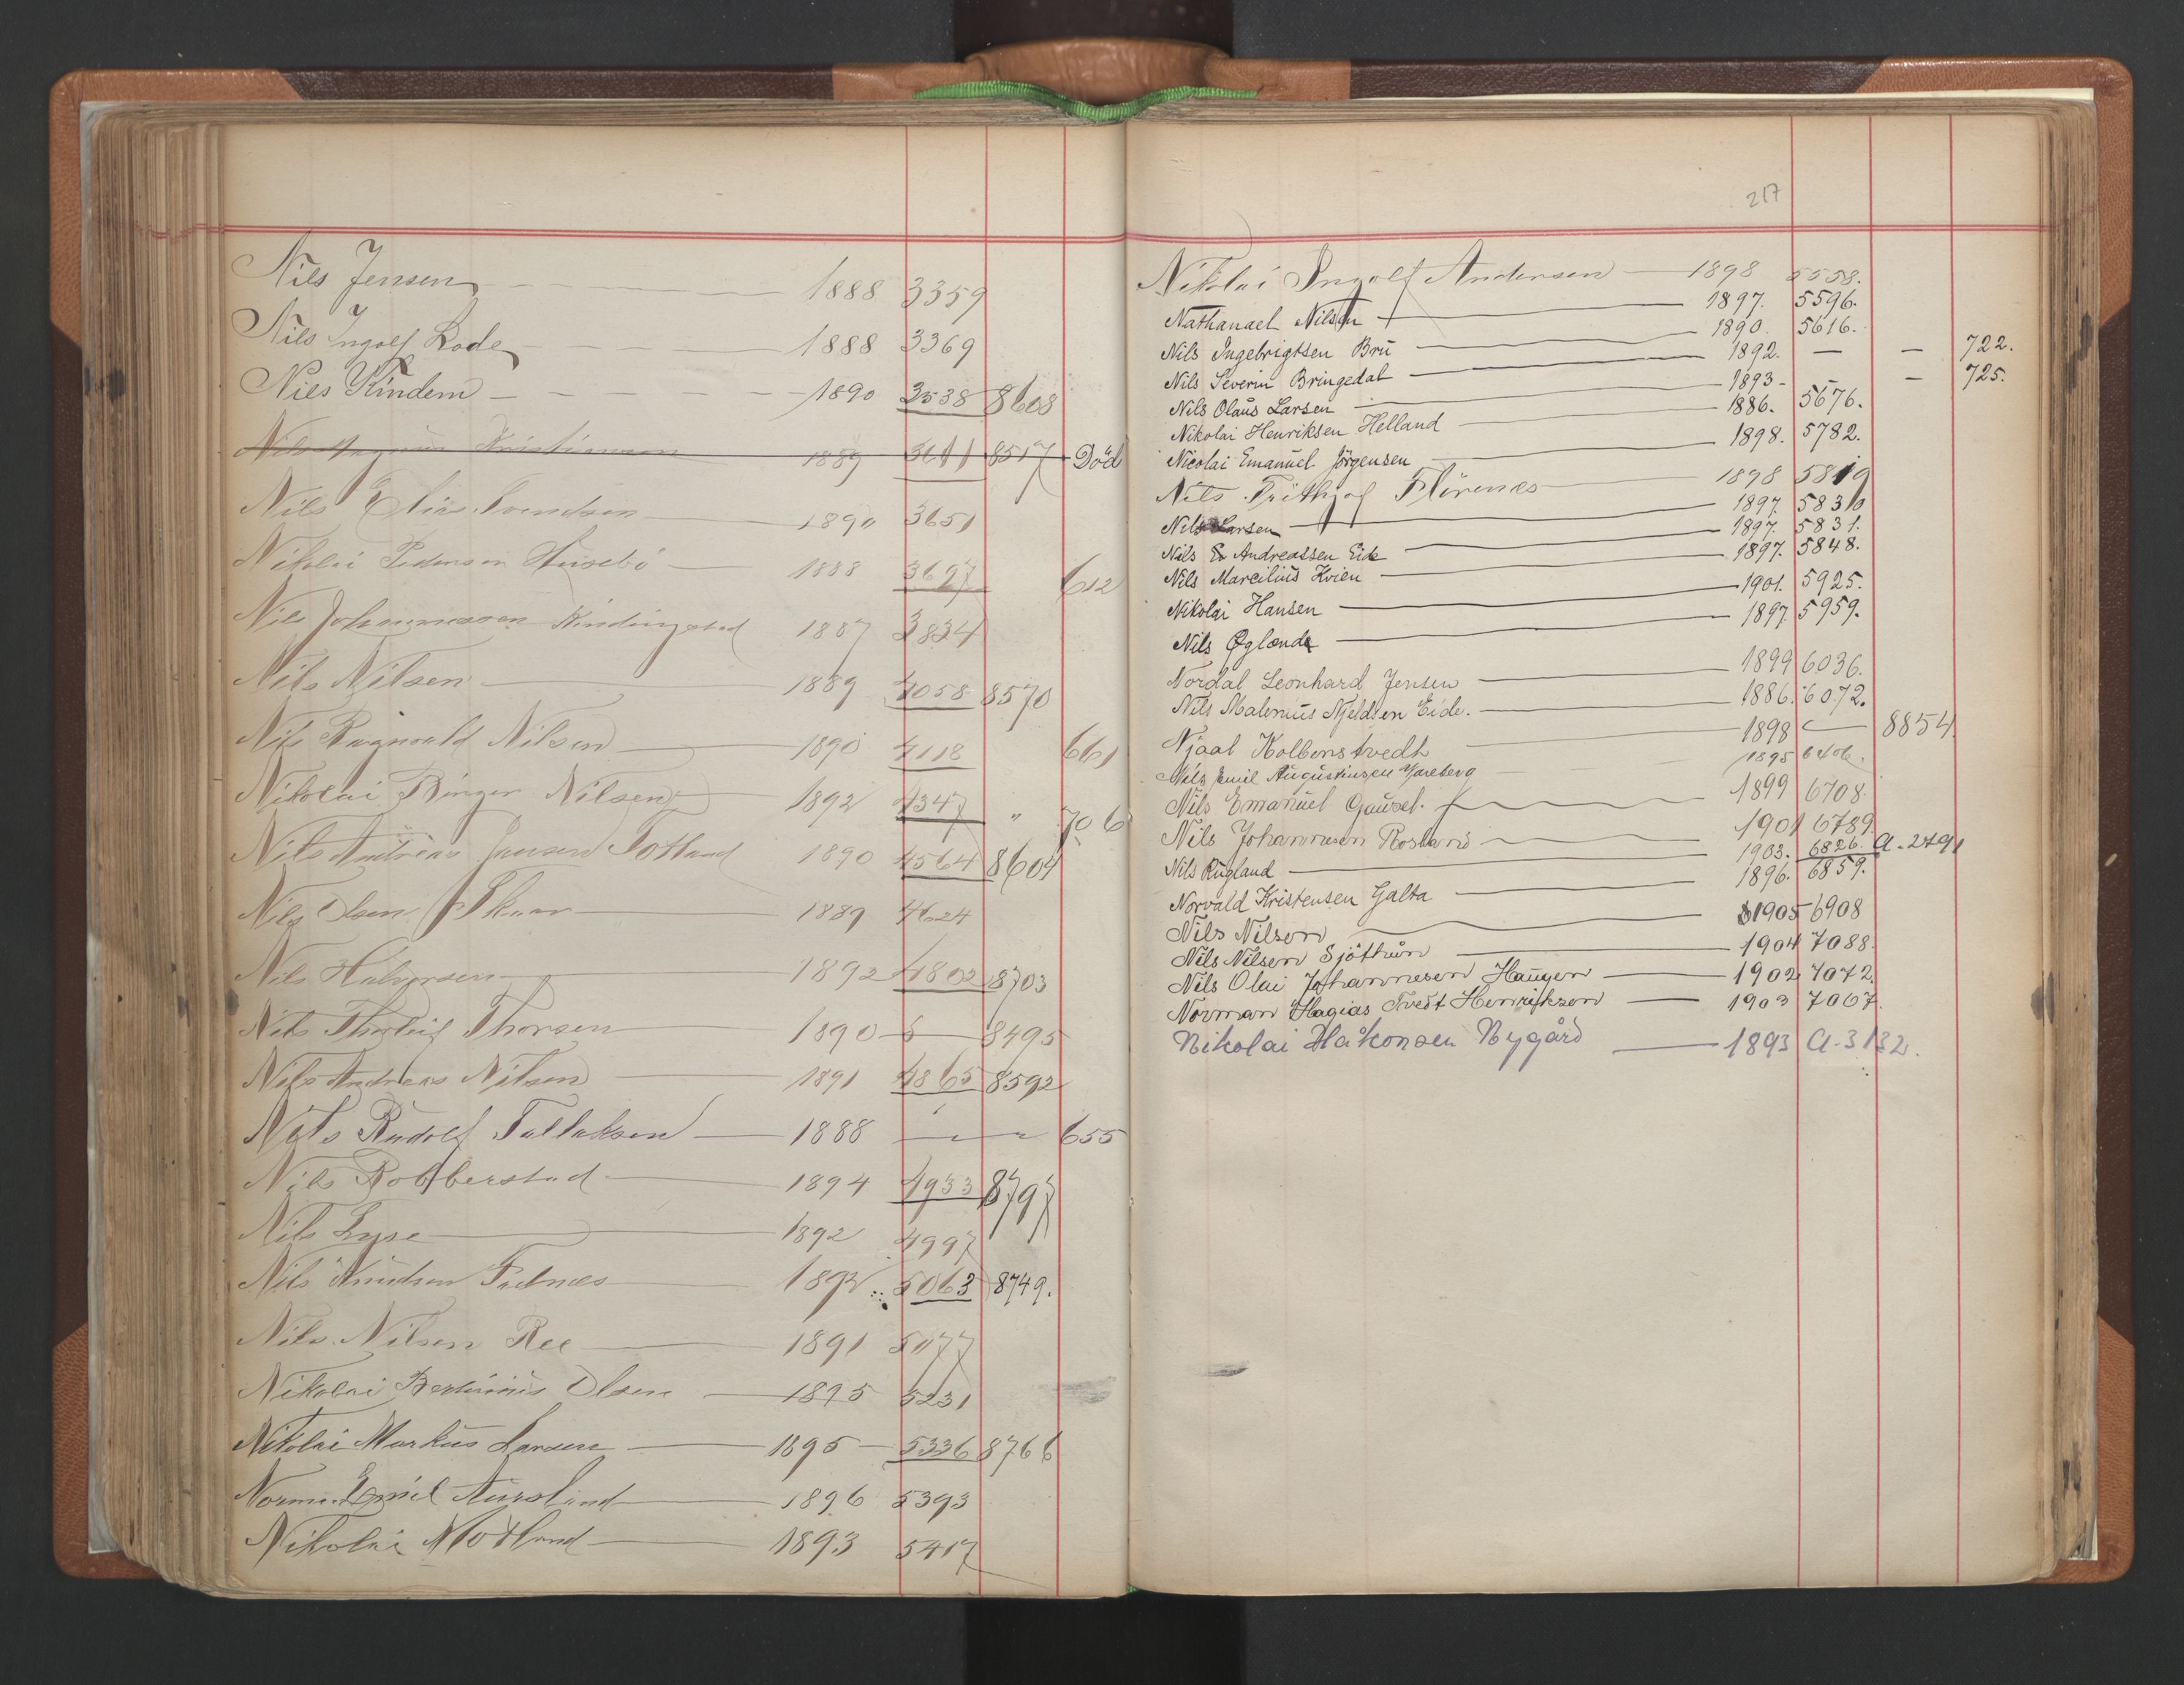 Nils Jensen 1888 3359
Nils Ingolf Lode 1888 3369
Nils Kindem 1890 3538 8608
Nils Kristiansen 1889 3611 8517 Död
Nils Elias Svendsen 1890 3651
Nikolai Pedersen Husebö 1888 3697 612
Nils Johannessen Kindingstad 1887 3834
Nils Nilsen 1889 4058 8570
Nils Ragnvald Nilsen 1890 4118 661
Nikolai Birger Nilsen 1892 4347 " 706
Nils Andreas Jansen Totland 1890 4564 8604
Nils Olsen 1889 4624
Nils Halvorsen 1892 4802 8703
Nils Thorleif Thorsen 1890 8495
Nils Andreas Nilsen 1891 4865 8592
Nils Rudolf Tallaksen 1888 — " — " 655
Nils Robberstad 1894 4933 8797
Nils Lyse 1892 4997
Nils Knudsen 1892 5063 8749.
Nils Nilsen Ree 1891 5077
Nikolai Bertinius Olsen 1895 5231
Nikolai Markus Larsen 1895 5336 8766
Norman Emil Aursland 1896 5393
Nikolai Motland 1893 5417
217
Nikolai Ingolf Andersen 1898 5558.
Nathanael Nilsen 1897. 5596.
Nils Ingebrigtsen Brü 1890. 5616.
Nils Severin Bringedal 1892. — — 722.
Nils Olaüs Larsen 1893 - — — 725.
Nikolai Henriksen Helland 1886. 5676.
Nicolai Emanüel Jörgensen 1898. 5782.
Nils Frithjof 1898 5819
Nils Larsen 1897. 5830
Nils Andreassen Eide 1897. 5831.
Nils Marcilius Kvien 1897. 5848.
Nikolai Hansen 1901. 5925.
Nils Øglænd 1897. 5959.
Nordal Leonhard Jensen 1899 6036.
Nils Malenius Njeldsen Eide. 1886. 6072.
Njaal Kolbenstvedt 1898 — 8854
Nils Emil Augustinsen Vareberg 1895 6406.
Nils Emanüel Gaüsel. 1899 6708.
Nils Johannesen Rosland 1901 6789.
Nils Rügland 1903. 6826. A. 2791
Norvald Kristensen Galta 1896. 6859.
Nils Nilsen 1905 6908
Nils Nilsen Sjöthün 1904 7088.
Nils Olai Johannesen Haugen 1902 7072.
Norman Hagias Tvedt Henriksen 1903 7067.
Nikolai Håkonsen Nygård 1893 A. 3132.